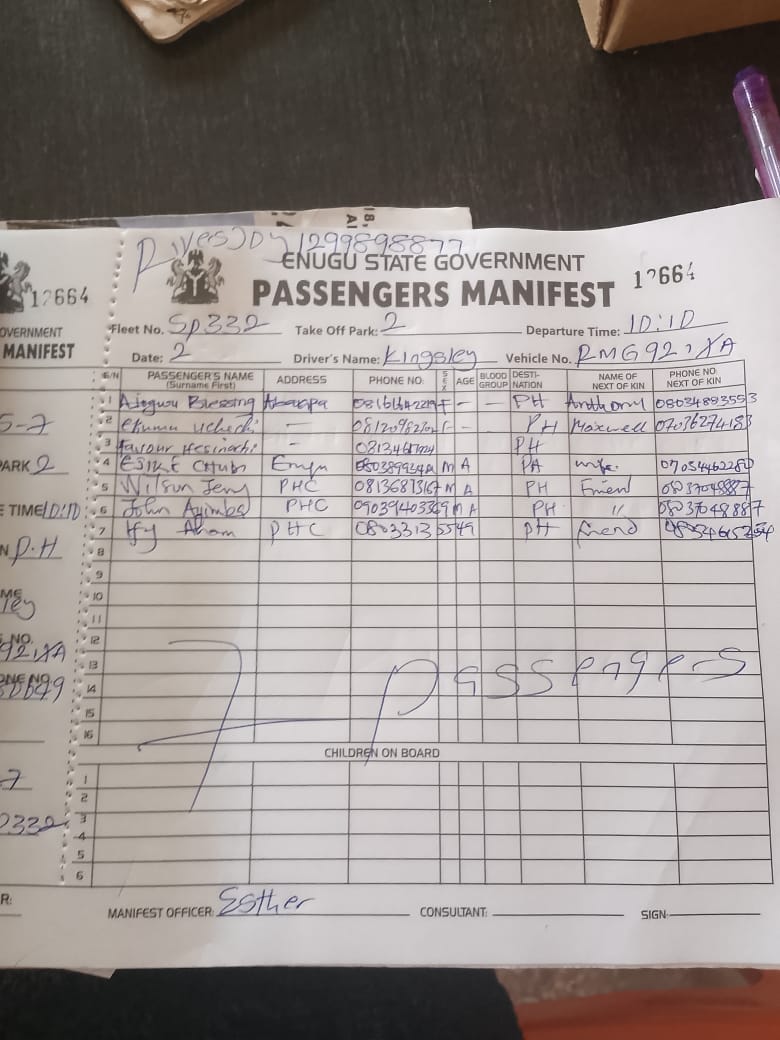 RivesJoy 1299898877
ENUGU STATE GOVERNMENT
PASSENGERS MANIFEST
12664
Fleet No. SP332 Take Off Park: 2 Departure Time: 10:10
Date: 2 Driver's Name: Kingsley Vehicle No. RMG92 XA
S/N PASSENGER'S NAME (Surname First) ADDRESS PHONE NO: SEX AGE BLOOD GROUP DESTI-NATION NAME OF NEXT OF KIN PHONE NO: NEXT OF KIN
1 Blessing F - - PH Anthony 08034893553
2 - PH Maxwell 07076274183
3 favour - PH
4 M A wife
5 Wilson Jerry PHC 08136873167 M A PH Friend 08037048887
6 John PHC 09039403369 M A PH " 08037048887
7 Ify Aham PHC 08033135549 PH friend
8
9
10
11
12
13
14
15
16
7 Passengers
CHILDREN ON BOARD
1
2
3
4
5
6
MANIFEST OFFICER: Esther CONSULTANT: SIGN:
12664
OVERNMENT
MANIFEST
S-7
PARK 2
E TIME 10:10
N P.H
ME
ley
NO.
92,XA
ONE NO.
7
332
R: